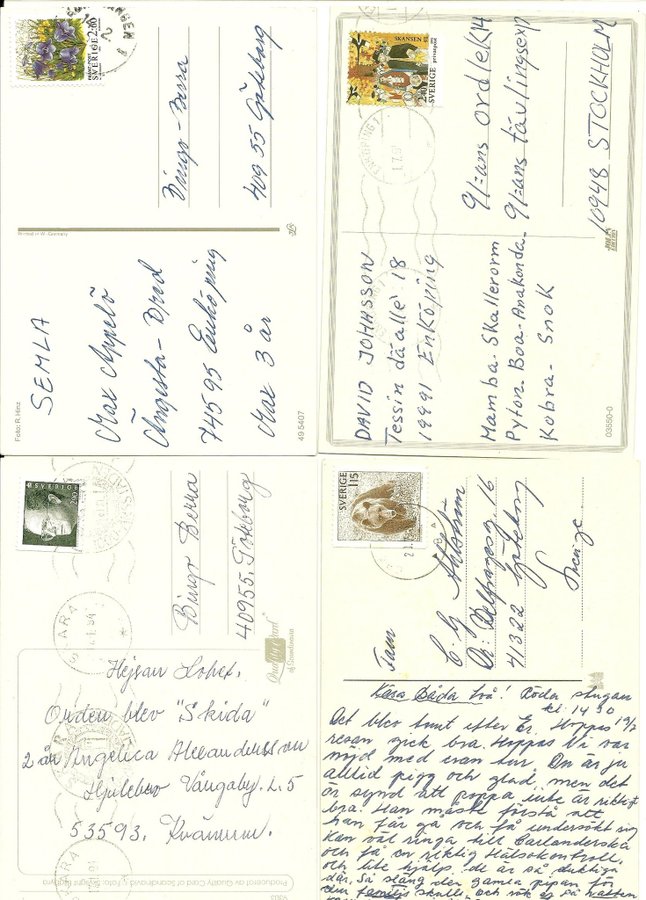 SVERIGE 2:80
Bingo-Berra
409 55 Göteborg
Printed in W. Germany
SEMLA
Max Appelö
Ängesta-Bred
74595 Enköping
Max 3 år
Foto: R. Hinz
49-5407
SKANSEN
SVERIGE
91:ans ordlek 14
91:ans tävlingsexp
10948 STOCKHOLM
DAVID JOHASSON
Tessin däallé 18
19991 ENKÖPING
Mamba-Skallerorm
Pyton-Boa-Anakonda-
Kobra-Snok
03550-0
SVERIGE
SKARA
Bingo Berna
40955 Göteborg
Quality Card
of Scandinavia
Hejsan Lotet.
Orden blev "Skida"
2 år Angelica Alexandersson
Hjulebo Vångaby L.5
53593. Kvänum.
Producerat av Quality Card of Scandinavia
SVERIGE 115
Fam
C G Ahlström
41322 Göteborg
Sverige
Kära Båda två! Röda stugan
19/7
kl. 14 30
Det blev tomt efter Er. Hoppas
resan gick bra. Hoppas Ni var
nöjd med eran tur. Du är ju
alltid pigg och glad, men det
är synd att pappa inte är riktigt
bra. Han måste förstå att
han får gå och få undersökt sig
Kan väl ringa till Carlanderska
och få en riktig Hälsokontroll.
och lite hjälp. de är så duktiga
där. Så släng den gamla pipan för